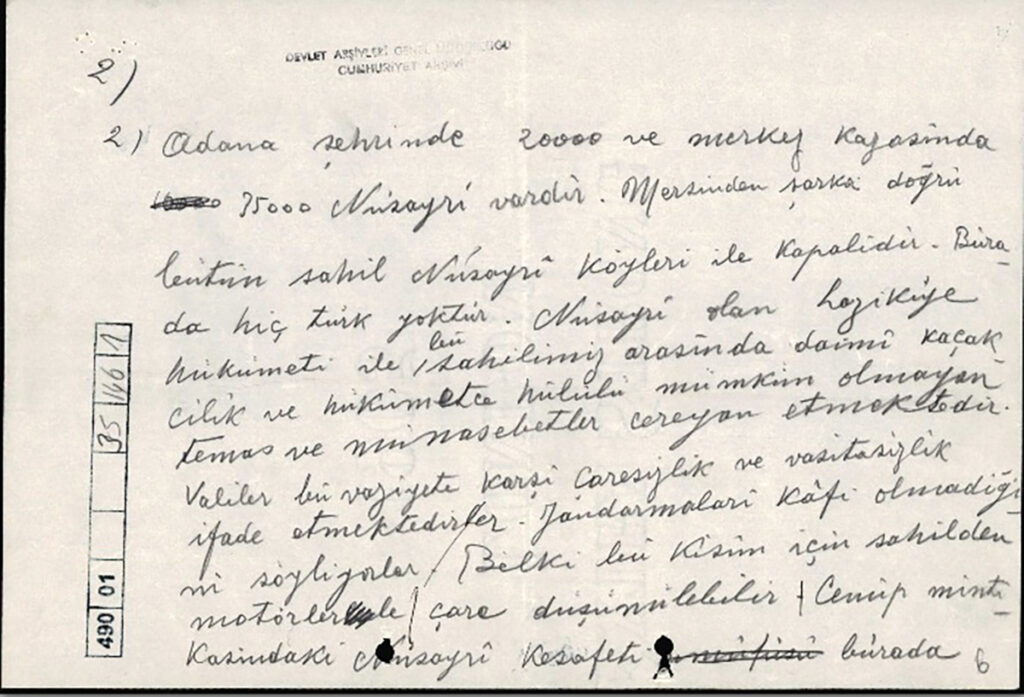 DEVLET ARŞİVLERİ GENEL MÜDÜRLÜĞÜ
CUMHURİYET ARŞİVİ
2)
2) Adana şehrinde 20000 ve merkez kazasinda
75000 Nüsayrî vardir. Mersinden şarka doğrü
bütün sahil Nüsayrî köyleri ile kapalidir. Büra-
da hiç türk yoktür. Nüsayrî olan Lazikiye
hükümeti ile bü sahilimiz arasinda daimî kaçak
cilik ve hükümetce hülülü mümkün olmayan
temas ve münasebetler cereyan etmektedir.
Valiler bü vaziyete karşi çaresizlik ve vasitasizlik
ifade etmektedirler. Jandarmalari kâfi olmadiği
ni söyliyorlar. Belki bü kisim için sahilden
motörlerle çare düşünülebilir. Cenüp minta
kasindaki Nüsayrî kesafeti nüfüsü bürada
6
490 01 35 146 1